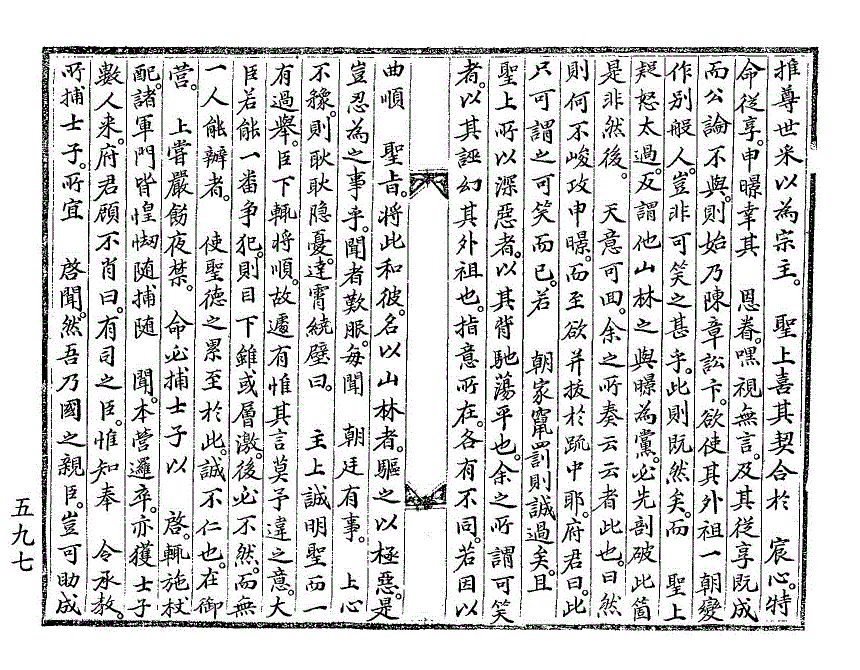 推尊世采以為宗主。 聖上喜其契合於 宸心。特
命從享。申暻幸其 恩眷。嘿視無言。及其從享既成
而公論不與。則始乃陳章訟卞。欲使其外祖一朝變
作別般人。豈非可笑之甚乎。此則既然矣。而 聖上
疑怒太過。反謂他山林之與暻為黨。必先剖破此箇
是非然後。 天意可回。余之所奏云云者此也。曰然
則何不峻攻申暻。而至欲并拔於疏中耶。府君曰。此
只可謂之可笑而已。若 朝家竄罰則誠過矣。且
聖上所以深惡者。以其背馳蕩平也。余之所謂可笑
者。以其誣幻其外祖也。指意所在。各有不同。若因以
曲順 聖旨。將此和彼。名以山林者。驅之以極惡。是
豈忍為之事乎。聞者歎服。每聞 朝廷有事。 上心
不豫。則耿耿隐憂。達宵繞壁曰。 主上誠明聖而一
有過舉。臣下輒將順。故遽有惟其言莫予違之意。大
臣若能一番争犯。則目下雖或層激。後必不然。而無
一人能辦者。 使聖德之累至於此。誠不仁也。在御
營。 上嘗嚴飭夜禁。 命必捕士子以 啓。輒施杖
配。諸軍門皆惶㤼随捕随 聞。本營邏卒。亦獲士子
數人來。府君顧不肖曰。有司之臣。惟知奉 令承教。
所捕士子。所宜 啓聞。然吾乃國之親臣。豈可助成
五九七